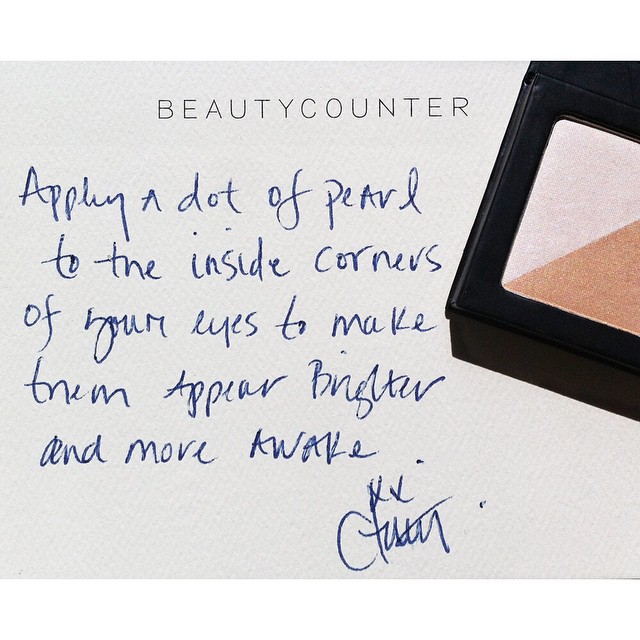 BEAUTYCOUNTER
Apply a dot of pearl
to the inside corners
of your eyes to make
them appear Brighter
and more AWAKE.
xx.